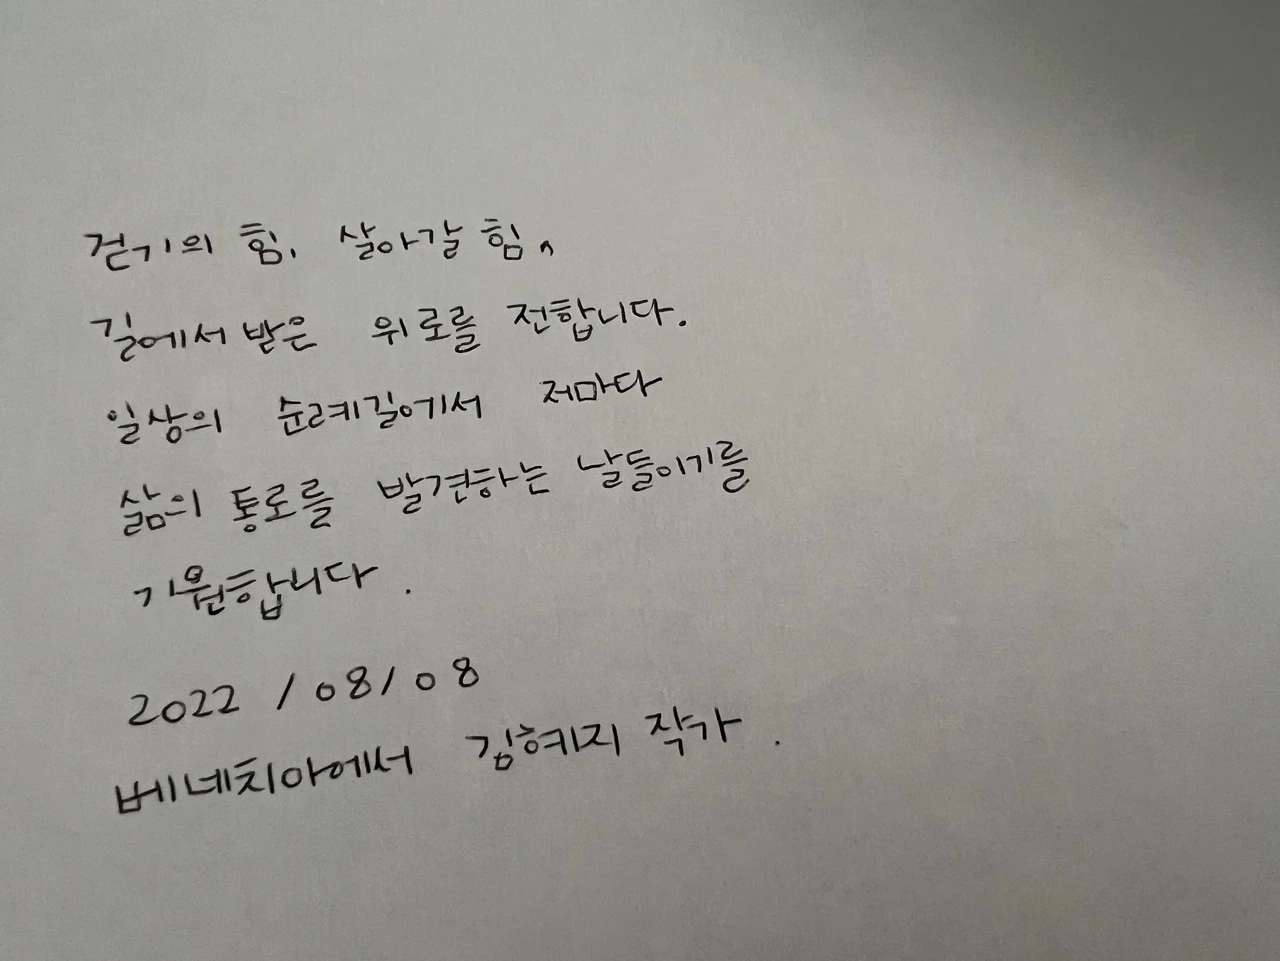 걷기의 힘, 살아갈 힘,
길에서 받은 위로를 전합니다.
일상의 순례길에서 저마다
삶의 통로를 발견하는 날들이기를
기원합니다.
2022 / 08 / 08
베네치아에서 김혜지 작가.